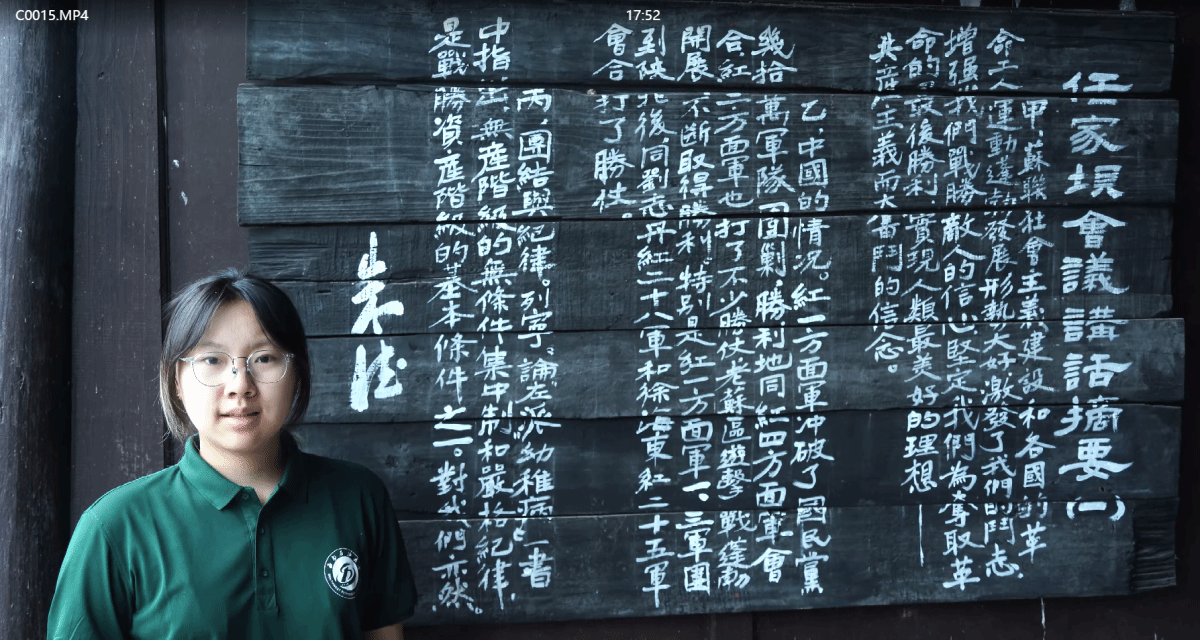 C0015.MP4
17:52
任家垻會議講話摘要(一)
甲、蘇聯社會主義建設和各國的革
命工人運動蓬勃發展形勢大好激發了我們的鬥志,
增强我們戰勝敵人的信心堅定我們為奪取革
命的最後勝利,實現人類最美好的理想—
共産主義而大奮鬥的信念。
乙、中國的情況。紅一方面軍冲破了國民黨
幾拾萬軍隊圍剿,勝利地同紅四方面軍會
合紅二方面軍也打了不少勝仗老蘇區遊擊戰蓬勃
開展,不斷取得勝利,特别是紅一方面軍一、三軍團
到陝北後,同劉志丹紅二十八軍和徐海東紅二十五軍
會合打了勝仗。
丙、團結與紀律。列寧“論左派幼稚病”一書
中指出:無産階級的無條件集中制和嚴格紀律,
是戰勝資産階級的基本條件之一。對我們亦然。
朱德